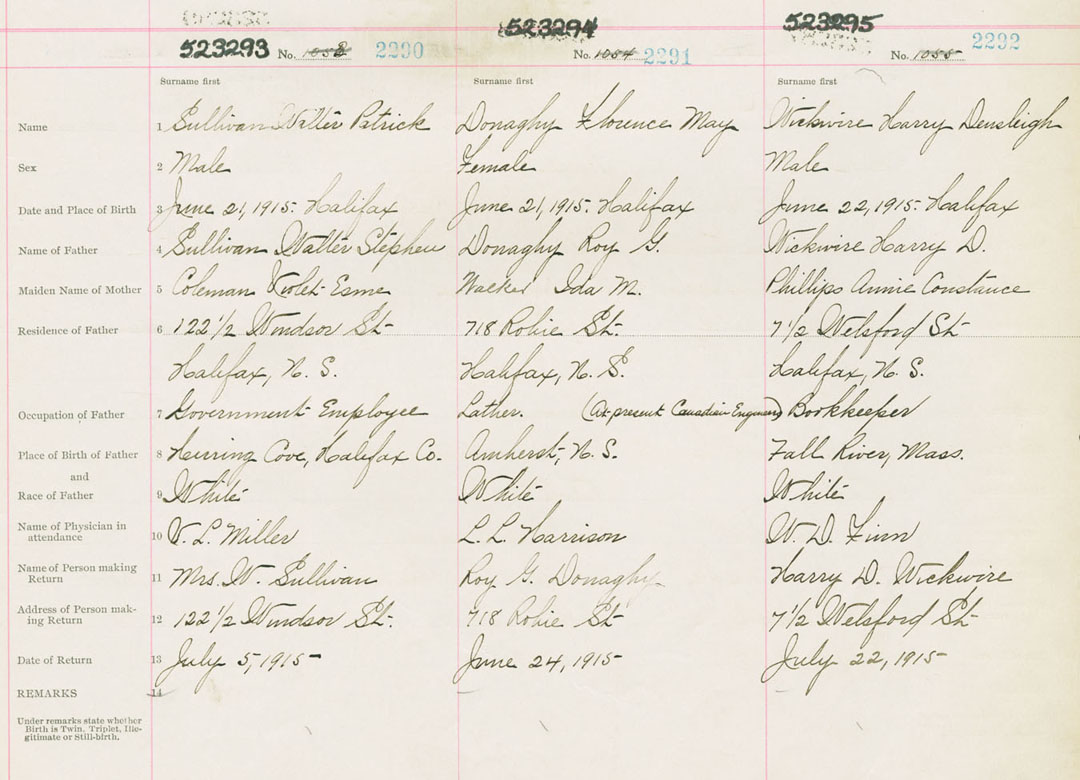 523293 No. 1053 2290 523294 No. 1054 2291 523295 No. 1055 2292
Surname first Surname first Surname first
Name 1 Sullivan Walter Patrick Donaghy Florence May Wickwire Harry Densleigh
Sex 2 Male Female Male
Date and Place of Birth 3 June 21, 1915. Halifax June 21, 1915. Halifax June 22, 1915. Halifax
Name of Father 4 Sullivan Walter Stephen Donaghy Roy G. Wickwire Harry D.
Maiden Name of Mother 5 Coleman Violet Esme Walker Ida M. Phillips Annie Constance
Residence of Father 6 122 1/2 Windsor St 718 Robie St. 7 1/2 Welsford St
Halifax, N. S. Halifax, N. S. Halifax, N. S.
Occupation of Father 7 Government Employee Lather. (At present Canadian Engineers) Bookkeeper
Place of Birth of Father 8 Herring Cove, Halifax Co. Amherst, N. S. Fall River, Mass.
and
Race of Father 9 White White White
Name of Physician in
attendance 10 V. L. Miller L. L. Harrison W. D. Finn
Name of Person making
Return 11 Mrs. W. Sullivan Roy G. Donaghy Harry D. Wickwire
Address of Person mak-
ing Return 12 122 1/2 Windsor St. 718 Robie St 7 1/2 Welsford St
Date of Return 13 July 5, 1915 June 24, 1915 July 22, 1915
REMARKS 14
Under remarks state whether
Birth is Twin, Triplet, Ille-
gitimate or Still-birth.